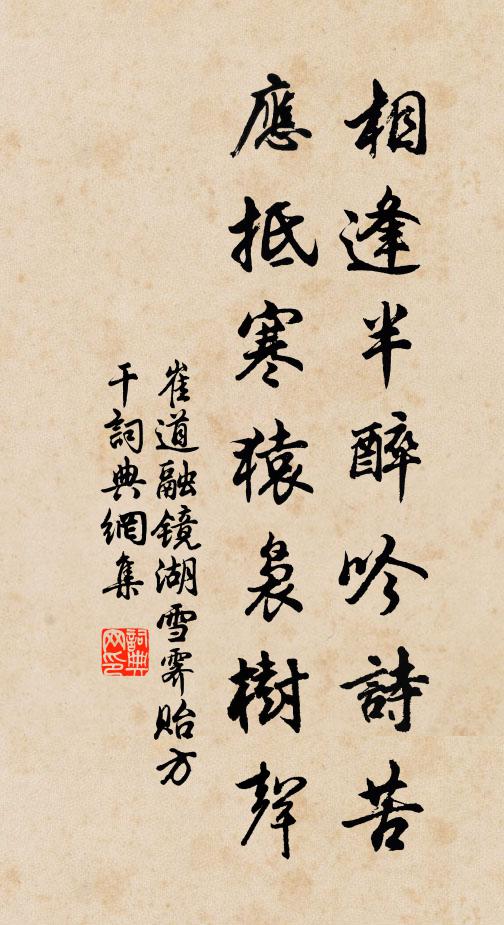 相逢半醉吟詩苦
應抵寒猿裊樹聲
崔道融鏡湖雪霽貽方
干詞典網集
詞典
网印